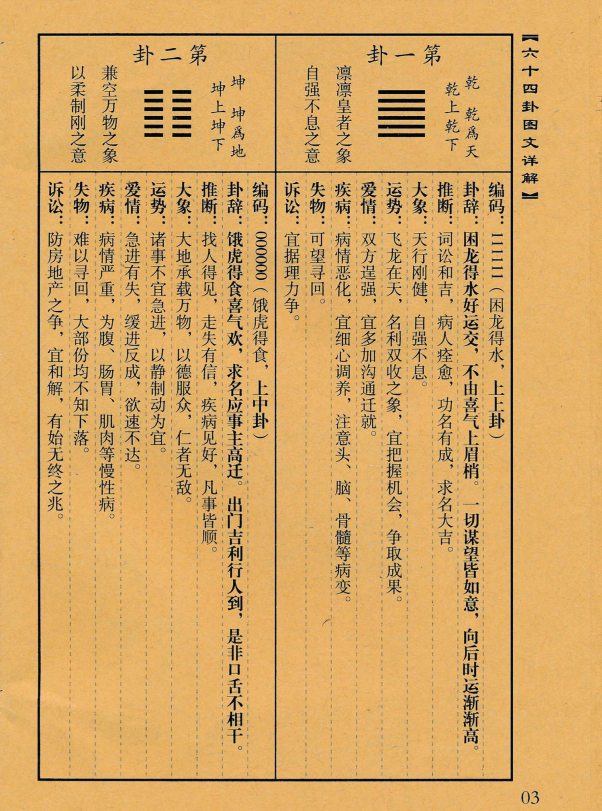 【六十四卦图文详解】
第一卦
乾 乾為天
乾上乾下
凛凛皇者之象
自强不息之意
编码：111111（困龙得水，上上卦）
卦辞：困龙得水好运交，不由喜气上眉梢。一切谋望皆如意，向后时运渐渐高。
推断：词讼和吉，病人痊愈，功名有成，求名大吉。
大象：天行刚健，自强不息。
运势：飞龙在天，名利双收之象，宜把握机会，争取成果。
爱情：双方逞强，宜多加沟通迁就。
疾病：病情恶化，宜细心调养，注意头、脑、骨髓等病变。
失物：可望寻回。
诉讼：宜据理力争。
第二卦
坤 坤為地
坤上坤下
兼空万物之象
以柔制刚之意
编码：000000（饿虎得食，上中卦）
卦辞：饿虎得食喜气欢，求名应事主高迁。出门吉利行人到，是非口舌不相干。
推断：找人得见，走失有信，疾病见好，凡事皆顺。
大象：大地承载万物，以德服众，仁者无敌。
运势：诸事不宜急进，以静制动为宜。
爱情：急进有失，缓进反成，欲速不达。
疾病：病情严重，为腹、肠胃、肌肉等慢性病。
失物：难以寻回，大部份均不知下落。
诉讼：防房地产之争，宜和解，有始无终之兆。
03